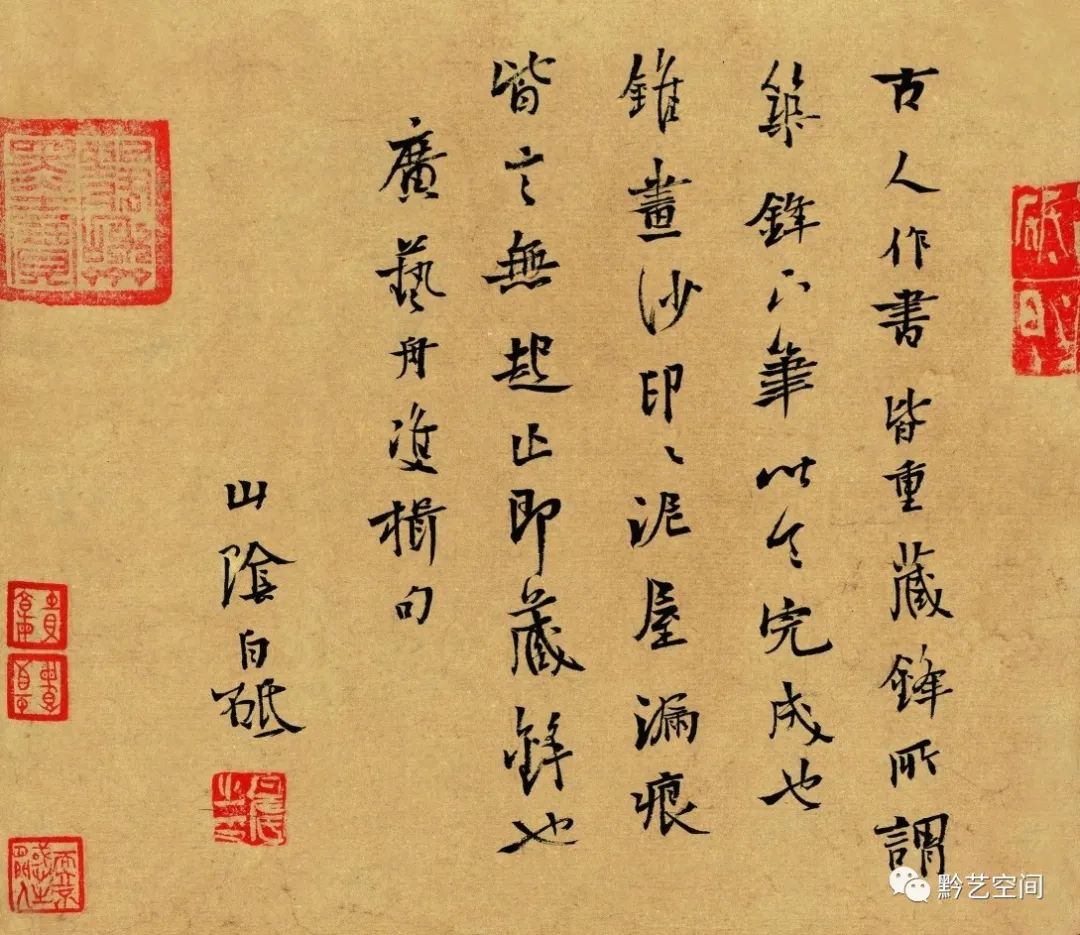 古人作書皆重藏鋒所謂
築鋒下筆以令完成也
錐畫沙印〻泥屋漏痕
皆言無起止即藏鋒也
廣藝舟雙楫句
山陰白砥
黔艺空间